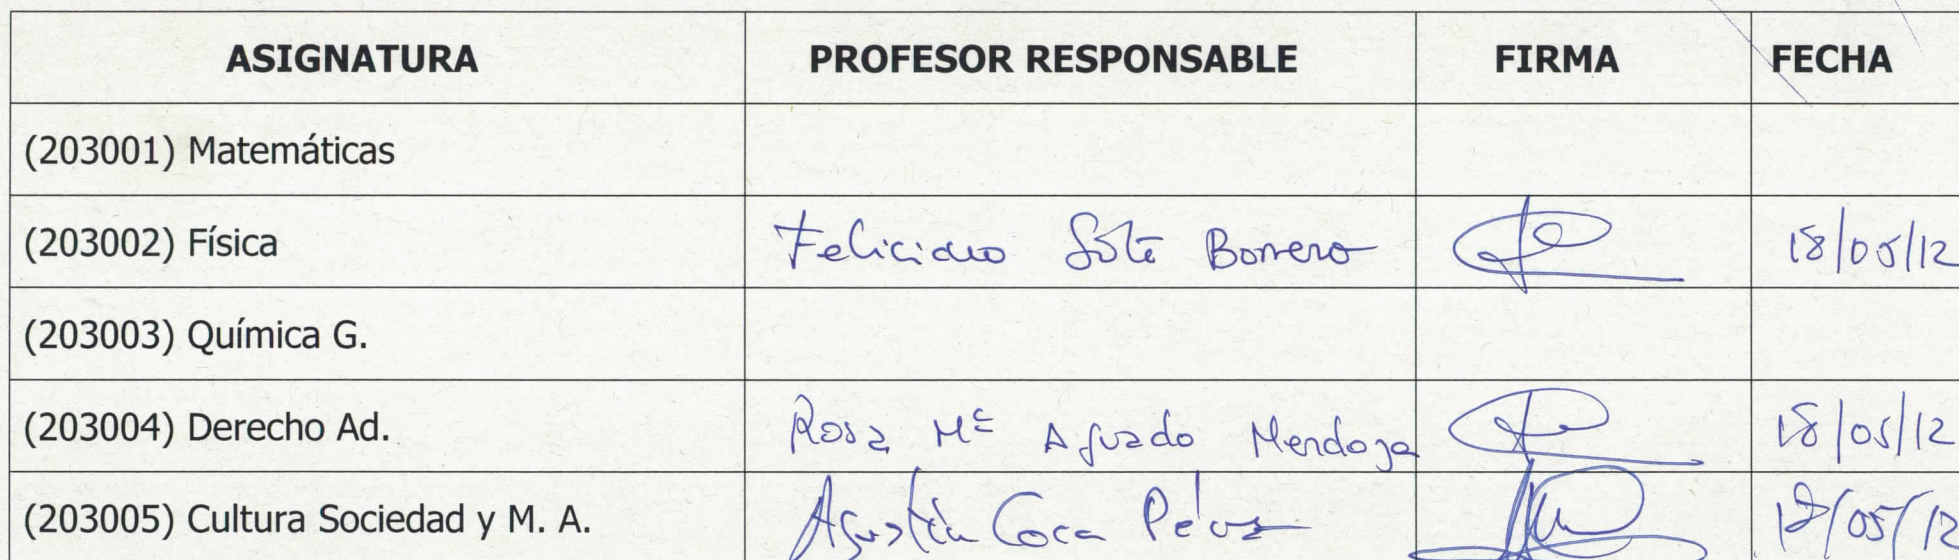 ASIGNATURA PROFESOR RESPONSABLE FIRMA FECHA
(203001) Matemáticas
(203002) Física Feliciano Soto Borrero 18/05/12
(203003) Química G.
(203004) Derecho Ad. Rosa Mª Aguado Mendoza 18/05/12
(203005) Cultura Sociedad y M. A. Agustín Coca Pérez /05/12